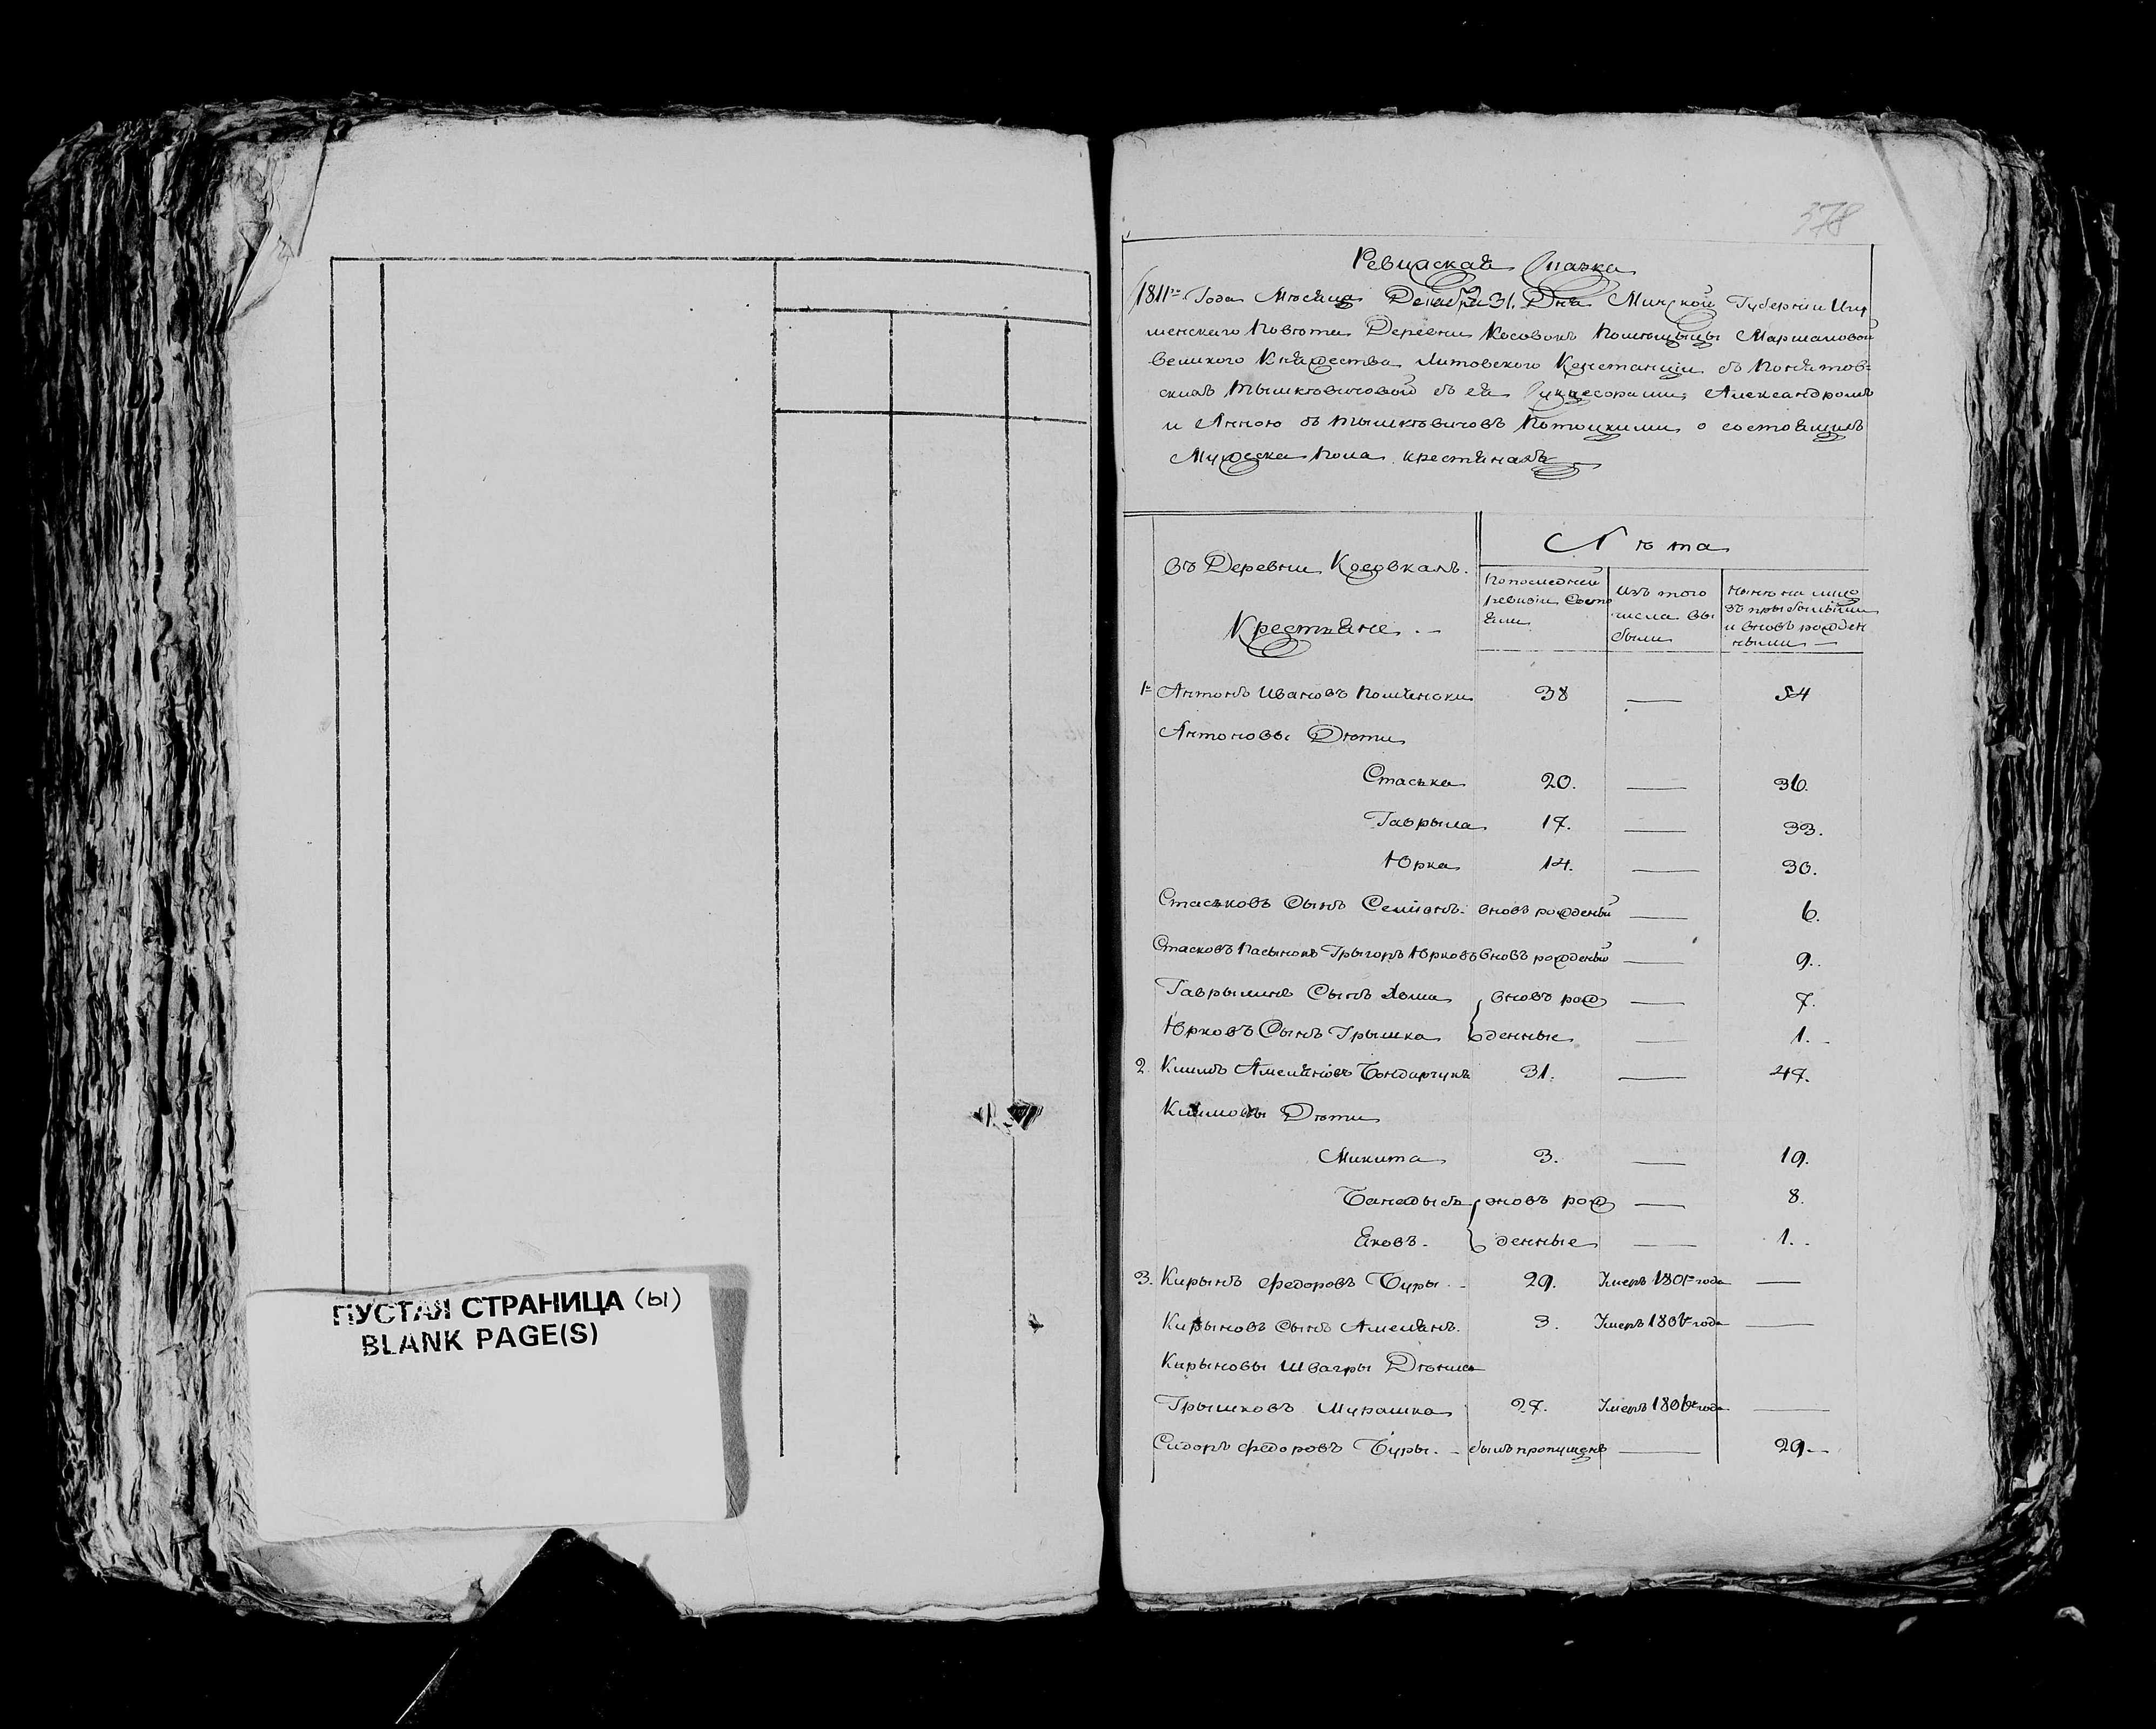 ПУСТАЯ СТРАНИЦА (ы)
BLANK PAGE(S)
378
Ревизская Сказка
1811го Года Месяца Декабря 31. Дня Минской Губернии Игу
менскаго Повета Деревни Косовокъ Помещицы Маршаловой
Великого Княжества Литовского Констанции съ Понятов=
скихъ Тышкевичовой съ ея Сукцесорами Александромъ
и Анною съ Тышкевичовъ Потоцкими о состоящихъ
Мужеска Пола крестянахъ
Въ Деревни Косовкахъ.
Крестьяне. —
Лѣта
По последней ревизии Состояли
Изъ того числа выбыли
Ныне на лицо зъ прыбылыми и вновь рожденными —
1е Антонъ Ивановъ 38 — 54
Антоновы Дѣти
Стаська 20. — 36.
Гаврыла 17. — 33.
Юрка 14. — 30.
Стаськовъ Сынъ Семіонъ. вновъ рожденый — 6.
Стасковъ Пасынокъ Грыгоръ Юрковъ вновъ рожденый — 9.
Гаврылинъ Сынъ Хома вновъ рож — 7.
Юрковъ Сынъ Грышка денные — 1.
2. Климъ Амеляновъ Бондарчукъ 31. — 47.
Климовы Дѣти
Микита 3. — 19.
Банедысь вновъ рож — 8.
Яковъ. денные — 1.
3. Кирынъ Федоровъ Буры. 29. Умеръ 1801го года —
Кирыновъ Сынъ Амелянъ. 3. Умеръ 180 года —
Кирыновы Швагры Дѣниса
Грышковъ Мурашка 27. Умеръ 1806го года —
Сидоръ Федоровъ Буры. — былъ пропущенъ — 29 —